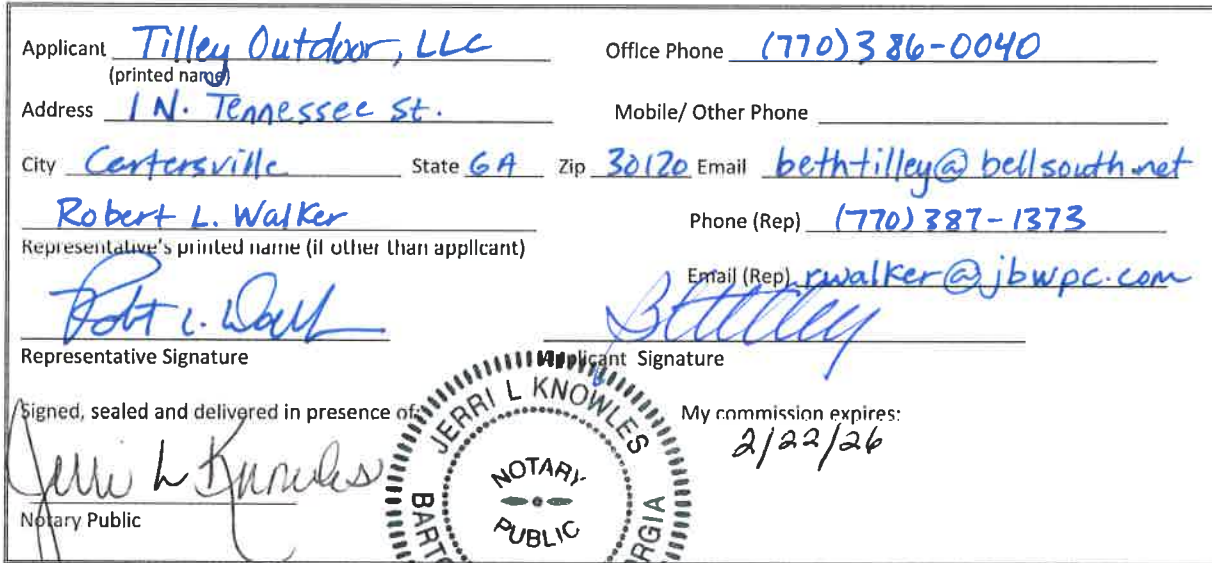 Applicant Tilley Outdoor, LLC Office Phone (770) 386-0040
(printed name)
Address 1 N. Tennessee St. Mobile/ Other Phone
City Cartersville State GA Zip 30120 Email bethtilley@bellsouth.net
Robert L. Walker Phone (Rep) (770) 387-1373
Representative's printed name (if other than applicant)
Email (Rep) rwalker@jbwpc.com
Robt L. Walk
Representative Signature Applicant Signature
Signed, sealed and delivered in presence of: My commission expires:
2/22/26
Jerri L Knowles
Notary Public
JERRI L KNOWLES
NOTARY
PUBLIC
BARTO
RGIA